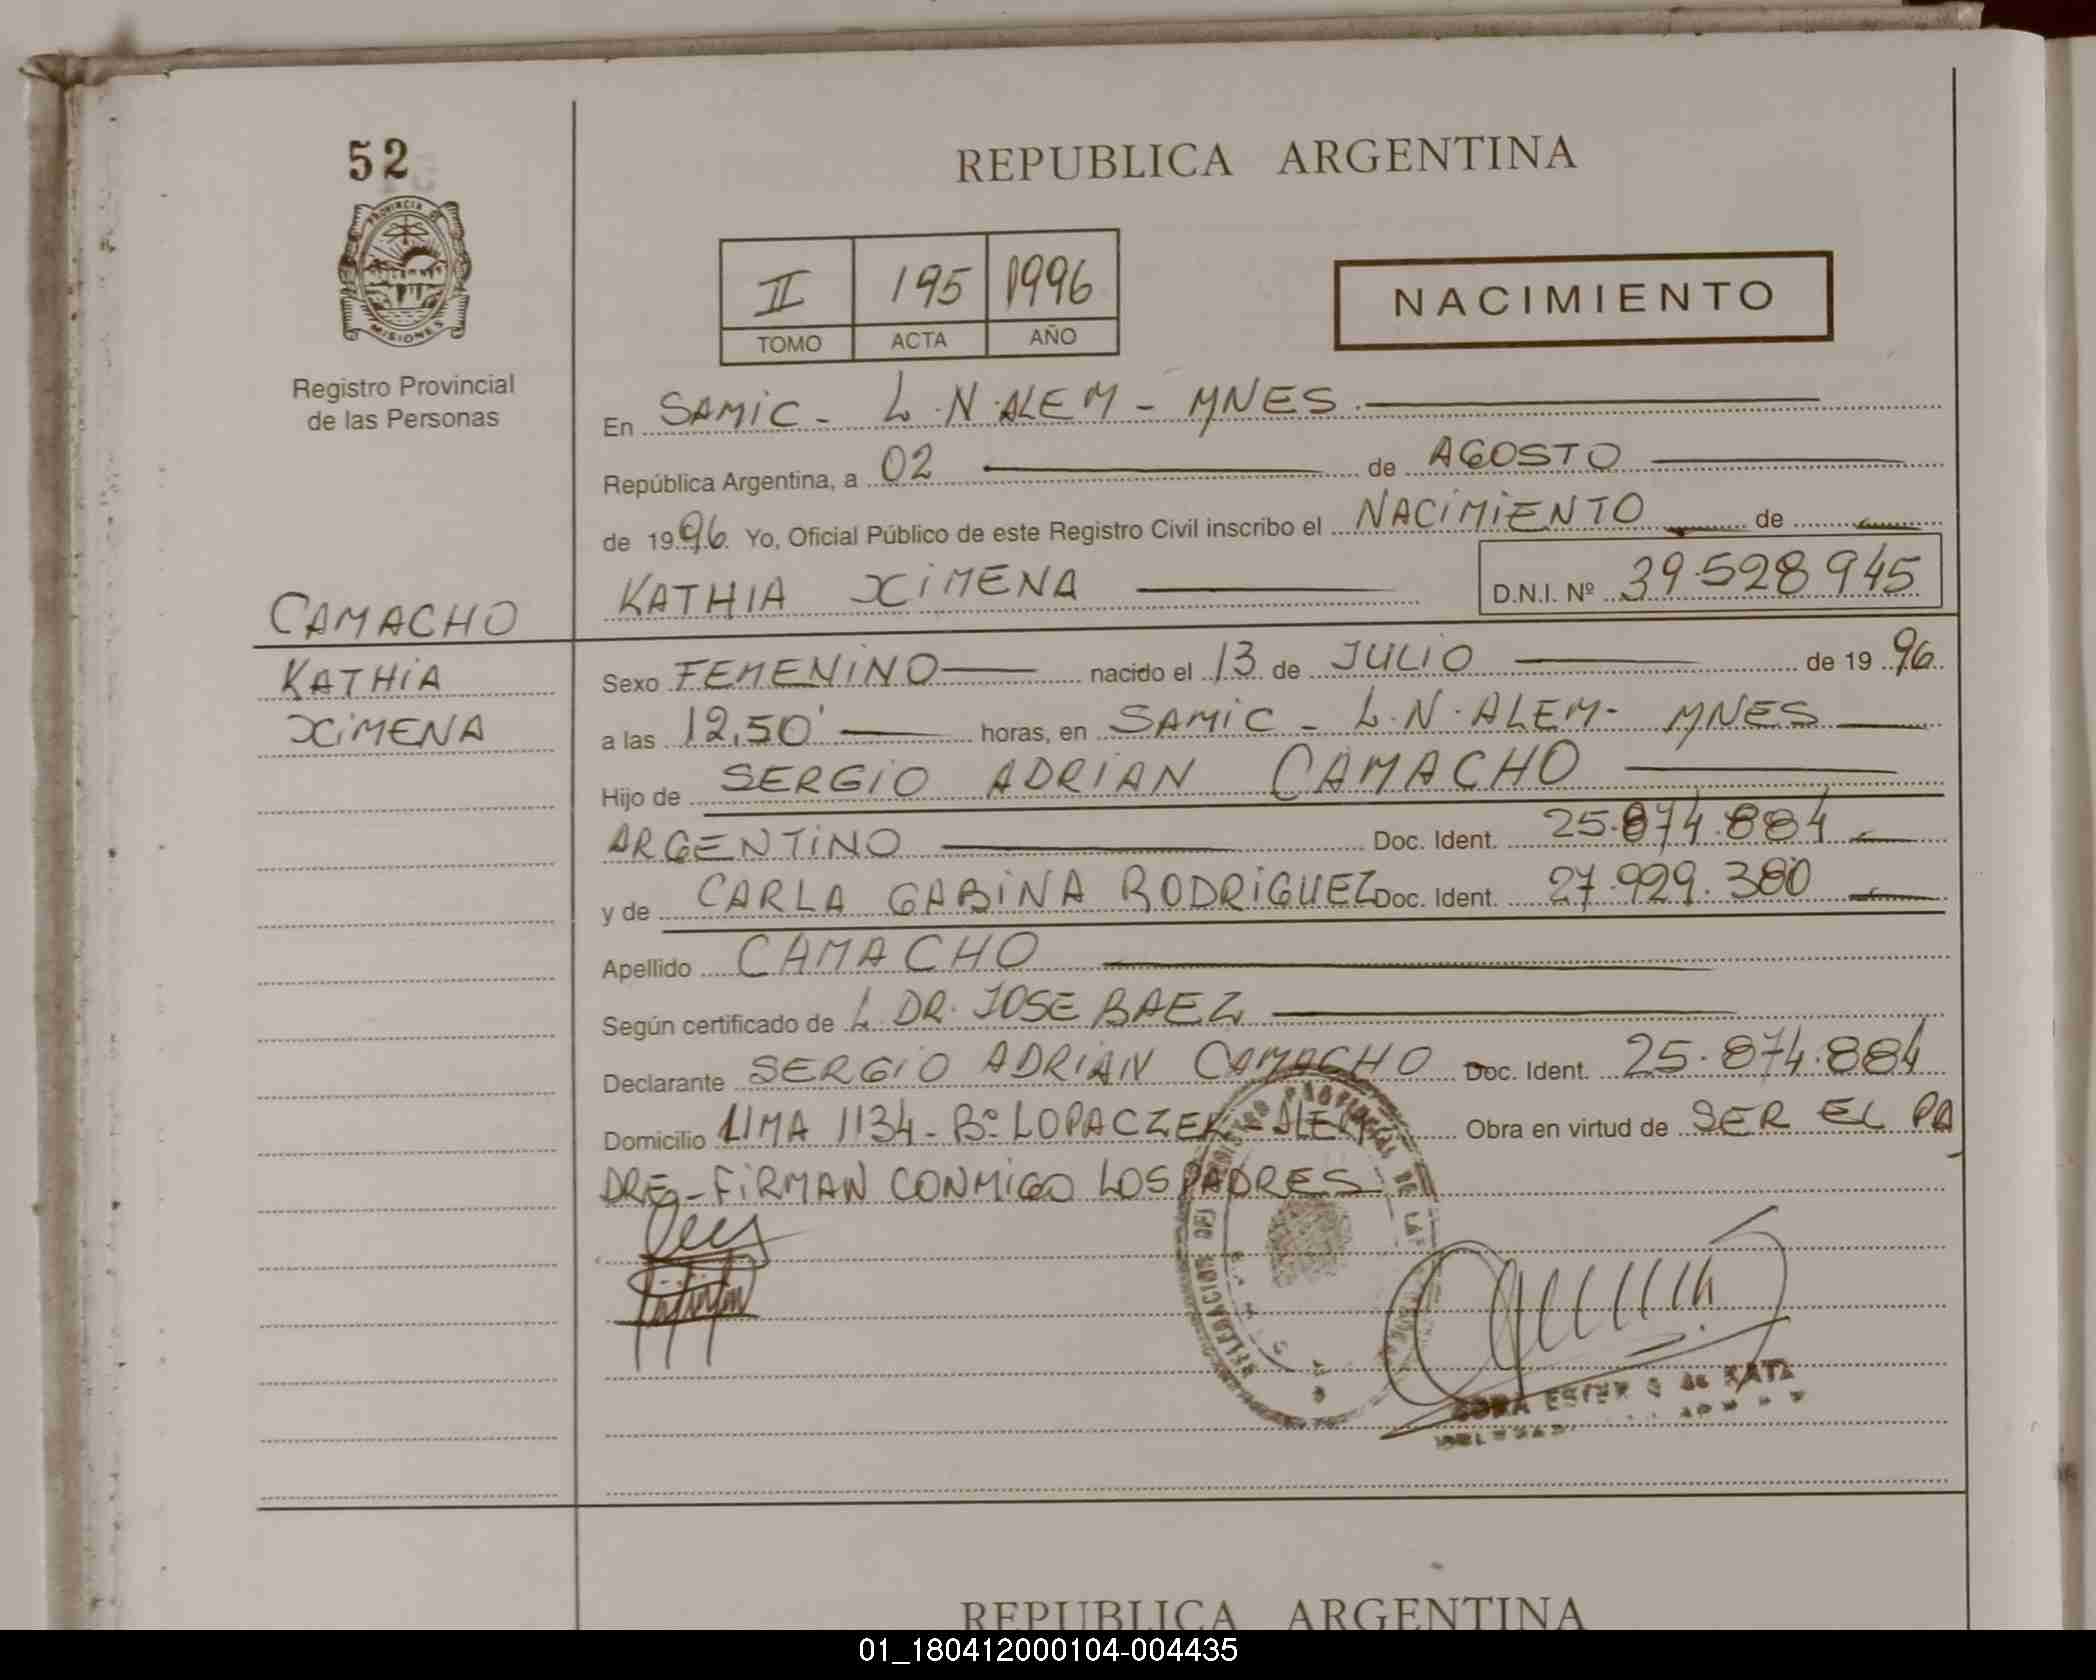 52
REPUBLICA ARGENTINA
PROVINCIA DE
MISIONES
Registro Provincial
de las Personas
II 195 1996
TOMO ACTA AÑO
NACIMIENTO
En SAMIC - L.N.ALEM - MNES.
República Argentina, a 02 de AGOSTO
de 1996 Yo, Oficial Público de este Registro Civil inscribo el NACIMIENTO de
KATHIA XIMENA D.N.I. Nº 39.528945
CAMACHO
KATHIA
XIMENA
Sexo FEMENINO nacido el 13 de JULIO de 1996
a las 12,50' horas, en SAMIC - L.N.ALEM- MNES
Hijo de SERGIO ADRIAN CAMACHO
ARGENTINO Doc. Ident. 25.874.884
y de CARLA GABINA RODRIGUEZ Doc. Ident. 27.929.380
Apellido CAMACHO
Según certificado de L DR. JOSE BAEZ
Declarante SERGIO ADRIAN CAMACHO Doc. Ident. 25.874.884
Domicilio LIMA 1134 - Bº LOPACZEK - ALEM Obra en virtud de SER EL PA
DRE - FIRMAN CONMIGO LOS PADRES
ESTER G de
REPUBLICA ARGENTINA
01_180412000104-004435